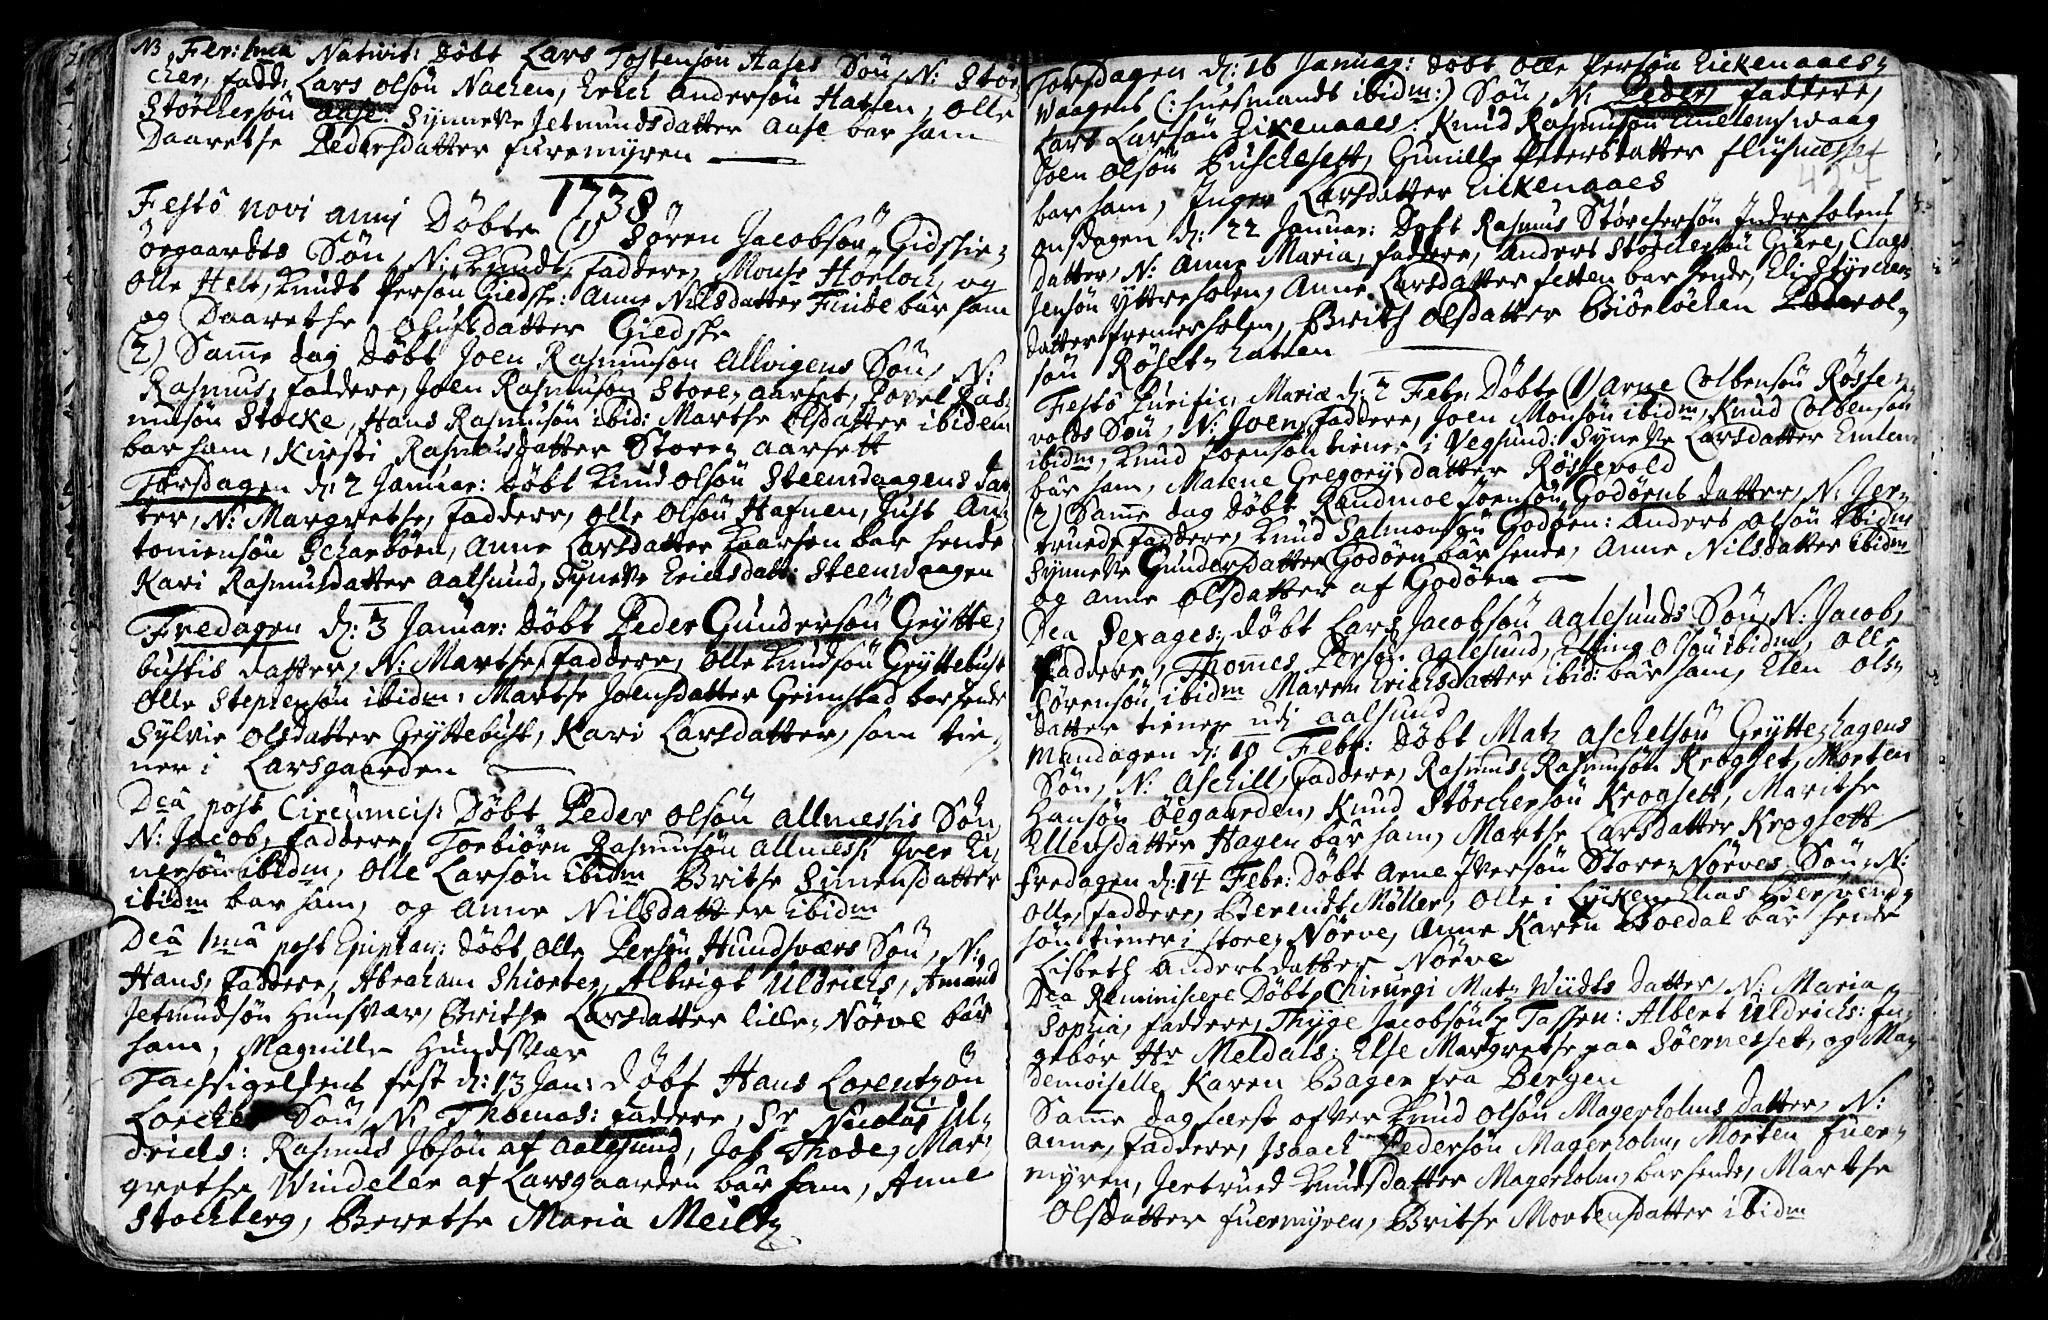 NB Fer: 1ma Nativit: döbt Lars Tostensön Aases Sön, N: Stör
cher, fadd: Lars Olsön Nachen, Erich Andersön Hatlen, Olle
Störchersön Aase: Synneve Jetmundsdatter Aase bar ham
Daarethe Pedersdatter furemyren
1738
Festo novi anni Döbte (1) Sören Jacobsön Gidskie
öegaardts Sön, N: Knudt, faddere, Mons Hörloch, og
Olle Helt, Knudt Persön Giedske: Anne Nilsdatter Finde bar ham
og Daarethe Olufsdatter Giedske
(2) Samme dag döbt Joen Rasmusön Allvigens Sön, N:
Rasmus, faddere, Joen Rasmusön Store-aarset, Povel Ras:
musön Stocke, Hans Rasmusön ibid: Marthe Olsdatter ibidem
bar ham, Kirsti Rasmusdatter Store-aarsett
Torsdagen d: 2 Januar: döbt Knud Olsön Steensvaagens dat
ter, N: Margrethe, faddere, Olle Olsön Hafnen, Just An
toniensön Scharböen, Anne Larsdatter Kaarsen bar hende
Kari Rasmusdatter Aalsund, Syneve Erichsdatt: Steensvaagen
Fredagen d: 3 Januar: döbt Peder Gundersön Grytte-
bustis datter, N: Marthe, faddere, Olle Knudsön Gryttebust
Olle Stephensön ibidm: Marthe Joensdatter Grimstad bar hende
Sylvie Olsdatter Gryttebust, Kari Larsdatter, som tie-
ner i Larsgaarden
Dca post Circumcis: Döbt Peder Olsön Allnessis Sön
N: Jacob, faddere, Torbiörn Rasmusön Allness: Iver Ei
nersön ibidm, Olle Larsön ibidm Brithe Simensdatter
ibidm bar ham, og Anne Nilsdatter ibidm
Dca 1ma post Epiphan: döbt Olle Persön Hundsværs Sön, N:
Hans, faddere, Abraham Skiorten, Albrigt Uldrichs, Amund
Jetmundsön Hunsvær, Brithe Larsdatter Lille-Nörve bar
ham, Magnille Hundsvær
Tachsigelsens fest d: 13 Jan: döbt Hans Lorentzön
Lorches Sön, N: Thomas: faddere, Sr Nicolai Ul-
drichs: Rasmus Ibsön af Aalesund, Joh Thode, Mar-
grethe Windeler af Larsgaarden bar ham, Anne
Stochberg, Berethe Maria Meiltz
Torsdagen d: 16 Januar: döbt Olle Persön Eickenaaes-
Vaagens (: huusmands ibidm:) Sön, N: Peder, faddere,
Lars Larsön Eikenaaes: Knud Rasmusön Emblemsvaag
Joen Olsön Puschesett, Gunille Petersdatter fliisnesset
427
bar ham, Inger Larsdatter Eickenaaes
Onsdagen d: 22 Januar: Döbt Rasmus Störchersön Indreholens
datter, N: Anne Maria, faddere, Anders Störchersön Giere, Claus
Jensön Yttreholen, Anne Larsdatter fetten bar hende, Eli Styrcher
datter fremerholen, Brith Olsdatter Biörlöchen Peder Ol-
sön Röset-hatlen
Festo Purific: Mariæ d: 2 Febr: Döbte (1) Arne Colbensön Rösse-
volds Sön, N: Joen, faddere, Joen Monsön ibidm, Knud Colbensön
ibidm, Knud Joensön tiener i Vegsund: Syneve Larsdatter Emlem
bar ham, Malene Gregorysdatter Rössevold
(2) Samme dag döbt Randmoe Joensön Godöens datter, N: Jer-
trued, faddere, Knud Salmonsön Godöen: Anders Olsön ibidm
Synneve Gundersdatter Godöen bar hende, Anne Nilsdatter ibidm
og Anne Olsdatter af Godöen
Dca Sexages: döbt Lars Jacobsön Aalesunds Sön, N: Jacob,
faddere, Thomes Persön Aalesund, Elling Olsön ibidm, Olle
Sörensön ibidm Maren Erichsdatter ibid: bar ham, Elen Ols-
datter tiener udi Aalsund
Mandagen d: 10 Febr: döbt Matz Aschelsön Grytte-hagens
Sön, N: Aschill, faddere, Rasmus Rasmusön Krogset, Morten
Hansön Öegaarden, Knud Störchersön Krogsett, Marithe
Ellensdatter Hagen bar ham, Marthe Larsdatter Krogsett
Fredagen d: 14 Febr: Döbt Arne Iversön Store-Nörves Sön, N:
Olle, faddere, Berendt Möller, Olle i Lyckene, Elias Bersvend-
söns tiener i Store-Nörve, Anne Karen Boedal bar hende
Lisbeth Andersdatter Nörve
Dca Reminiscere Döbt Chirurgi Matz Wiidts datter, N: Maria
Sophia, faddere, Thyge Jacobsön Tassen: Albert Uldrichs: In-
gebör Hr Meldals: Else Margrethe paa Söernesset, og Ma-
demoiselle Karen Bager fra Bergen
Samme dag læst ofver Knud Olsön Magerholms datter, N:
Anne, faddere, Isaach Pedersön Magerholm, Morten Fuer-
myren, Jertrued Knudsdatter Magerholm, bar hende, Marthe
Olsdatter Fuermyren, Brithe Mortensdatter ibidm